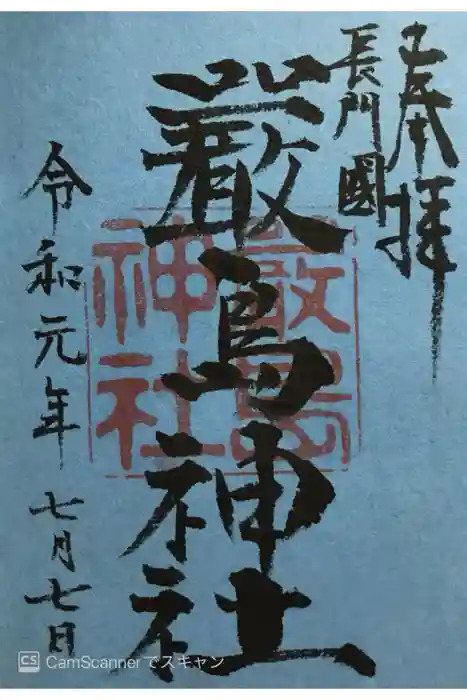 奉拝
長門國
嚴島神社
嚴島
神社
令和元年 七月七日
CS CamScanner でスキャン